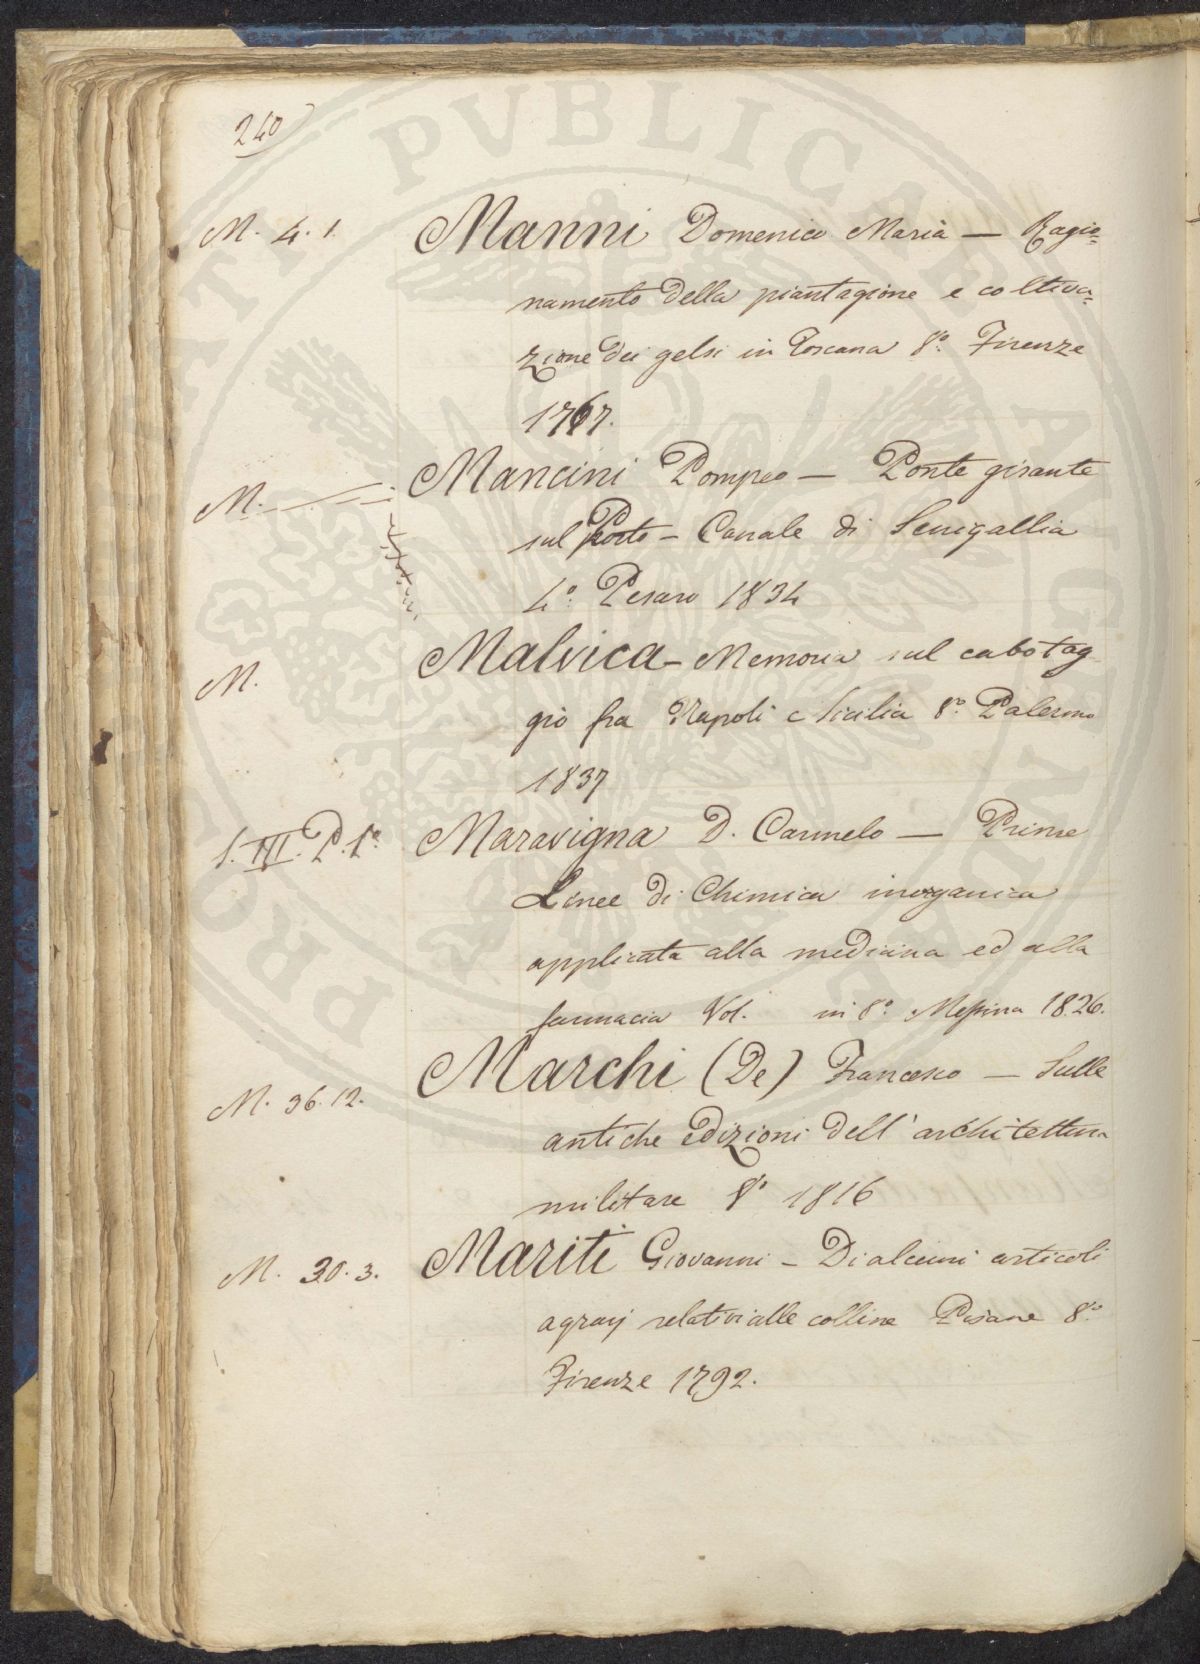 240
M. 4. 1. Manni Domenico Maria — Ragio=
namento della piantagione e coltiva=
zione dei gelsi in Toscana 8.º Firenze
1767.
M. Mancini Pompeo — Ponte girante
sul Porto - Canale di Senigallia
4.º Pesaro 1834
M. Malvica - Memoria sul cabotag
gio fra Napoli e Sicilia 8.º Palermo
1837
S. III. P. 1.ª Maravigna D. Carmelo — Prime
Linee di Chimica inorganica
applicata alla medicina ed alla
farmacia Vol. in 8.º Messina 1826.
M. 36. 12. Marchi (De) Francesco — Sulle
antiche edizioni dell' architettura
militare 8º 1816
M. 30. 3. Mariti Giovanni - Di alcuni articoli
agrarj relativi alle colline Pisane 8.º
Firenze 1792.
PRO PUBLICAE UTILITATI